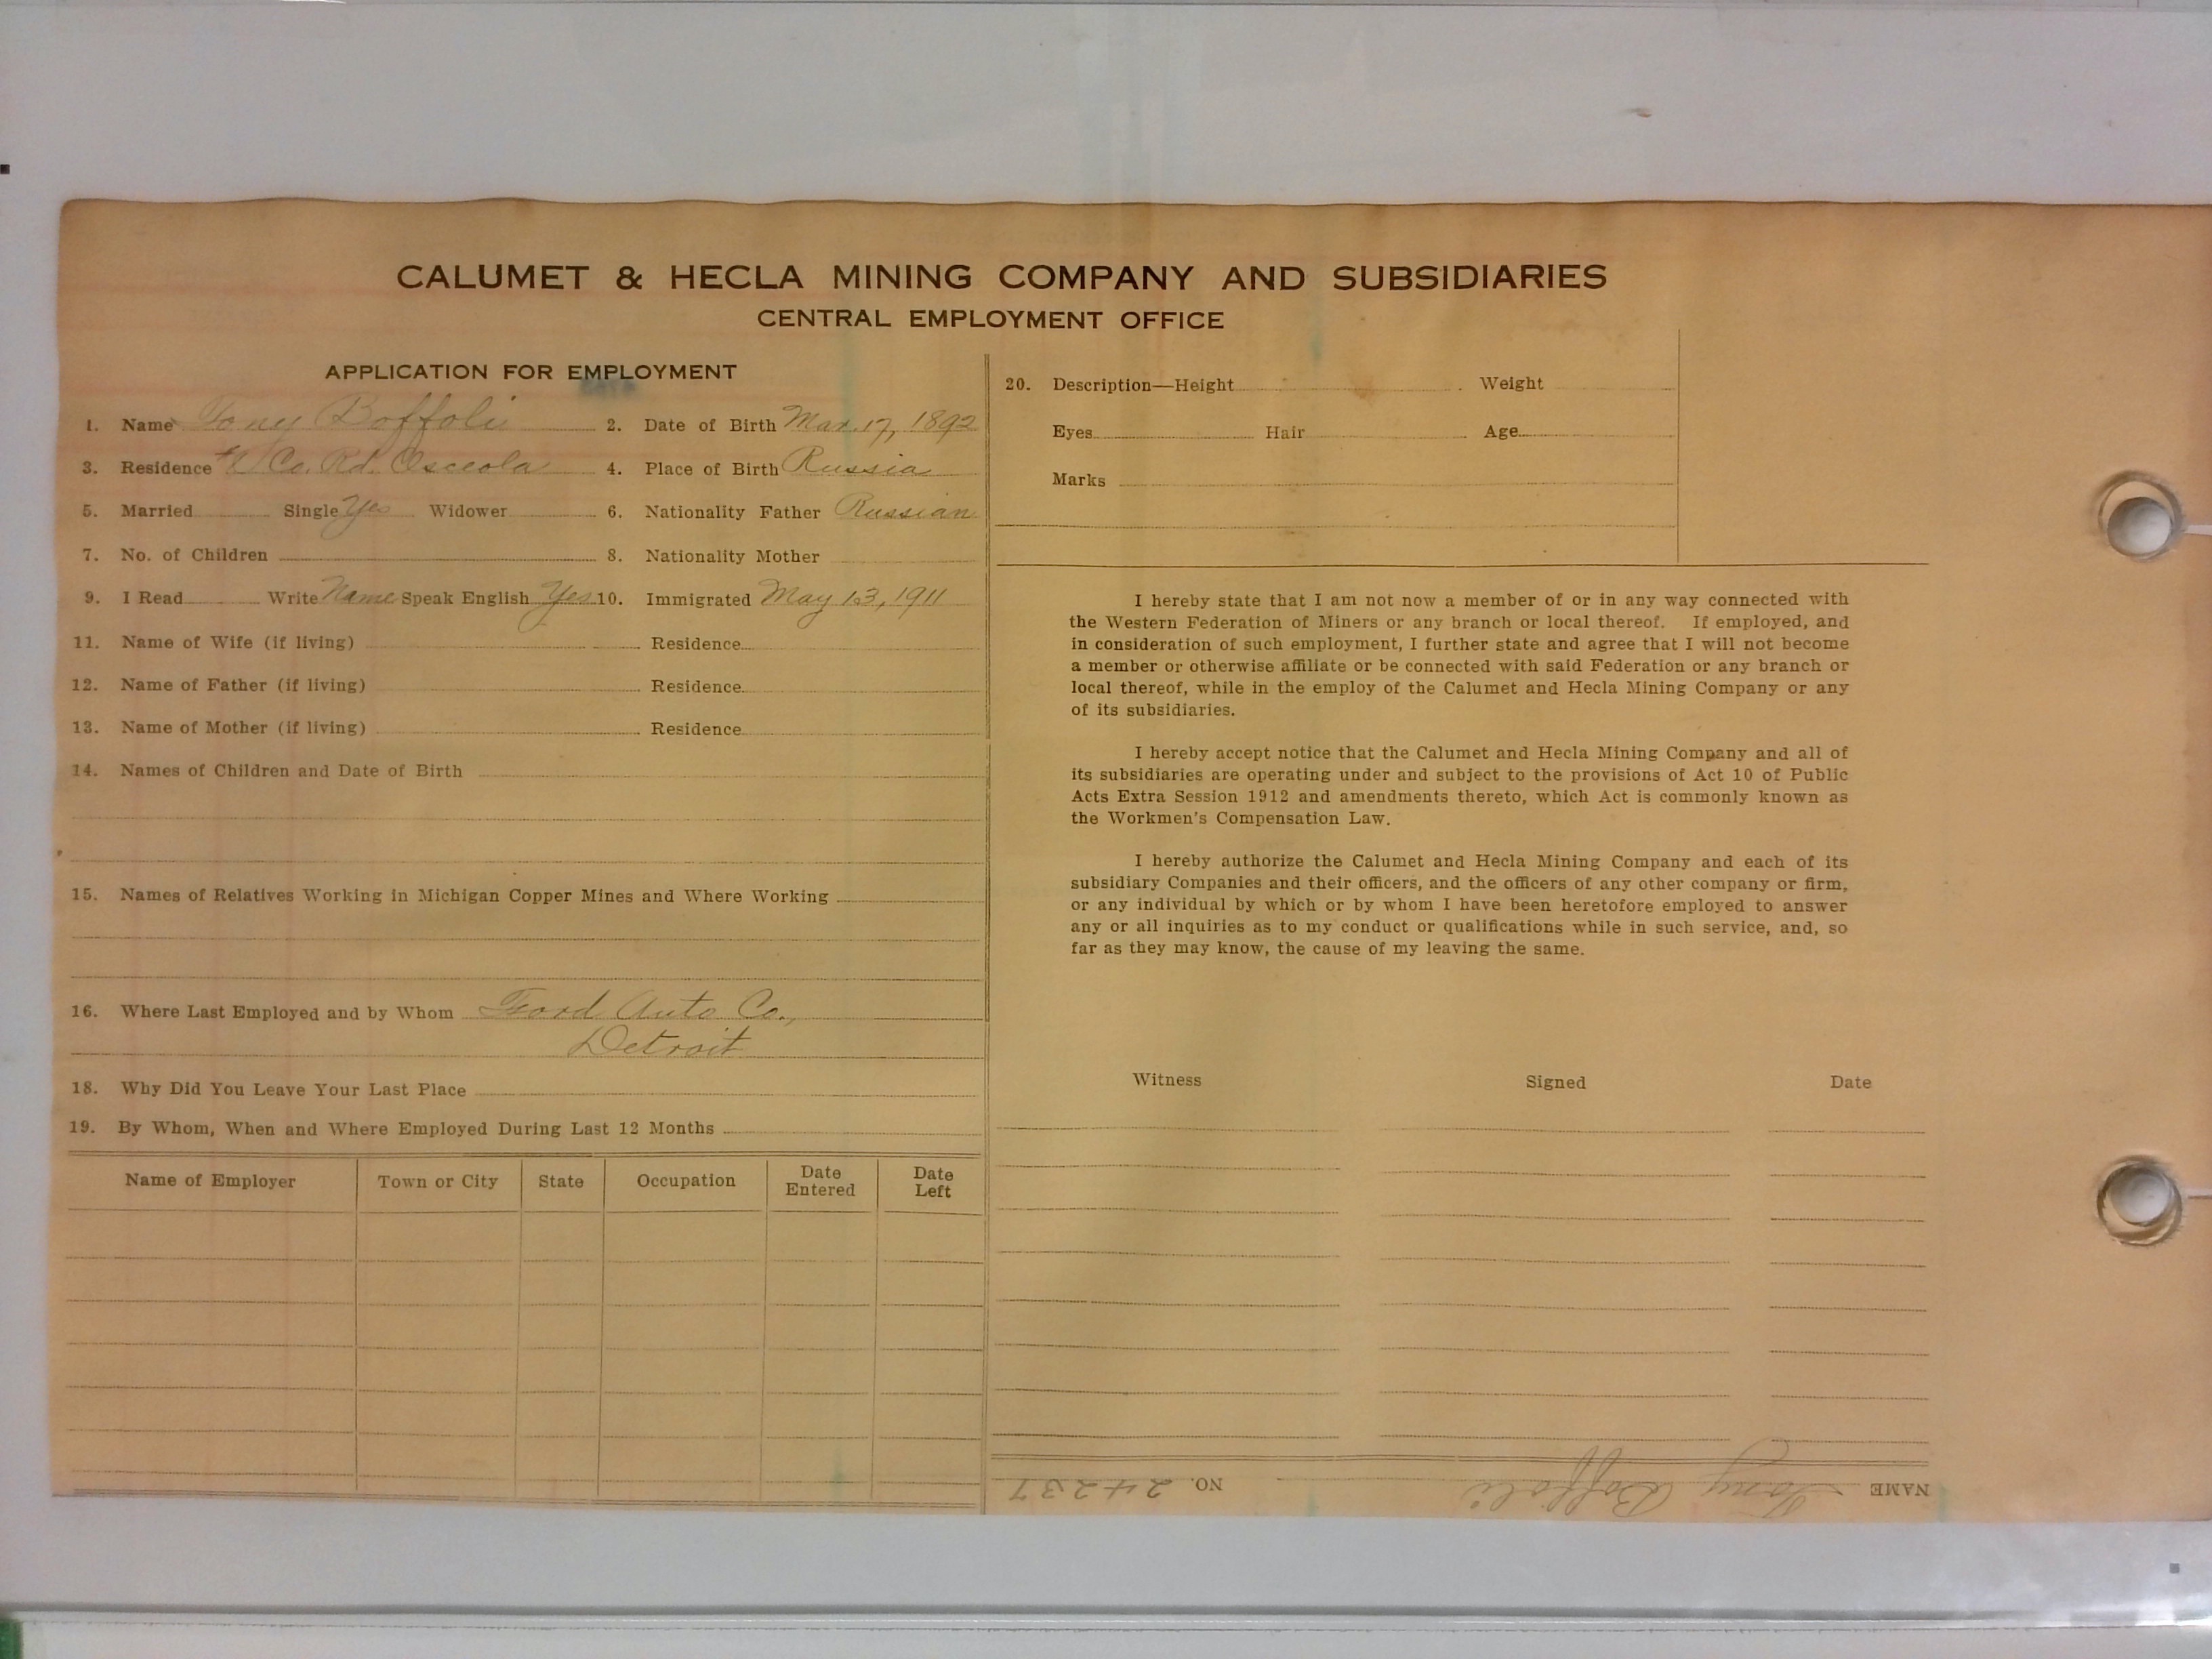 CALUMET & HECLA MINING COMPANY AND SUBSIDIARIES
CENTRAL EMPLOYMENT OFFICE
APPLICATION FOR EMPLOYMENT
1. Name Tony Boffoli 2. Date of Birth Mar. 17, 1892
3. Residence Co. Rd. Osceola 4. Place of Birth Russia
5. Married Single Yes Widower 6. Nationality Father Russian
7. No. of Children 8. Nationality Mother
9. I Read Write Name Speak English Yes 10. Immigrated May 13, 1911
11. Name of Wife (if living) Residence
12. Name of Father (if living) Residence
13. Name of Mother (if living) Residence
14. Names of Children and Date of Birth
15. Names of Relatives Working in Michigan Copper Mines and Where Working
16. Where Last Employed and by Whom Ford Auto Co.,
Detroit
18. Why Did You Leave Your Last Place
19. By Whom, When and Where Employed During Last 12 Months
Name of Employer Town or City State Occupation Date Entered Date Left
20. Description—Height Weight
Eyes Hair Age
Marks
I hereby state that I am not now a member of or in any way connected with
the Western Federation of Miners or any branch or local thereof. If employed, and
in consideration of such employment, I further state and agree that I will not become
a member or otherwise affiliate or be connected with said Federation or any branch or
local thereof, while in the employ of the Calumet and Hecla Mining Company or any
of its subsidiaries.
I hereby accept notice that the Calumet and Hecla Mining Company and all of
its subsidiaries are operating under and subject to the provisions of Act 10 of Public
Acts Extra Session 1912 and amendments thereto, which Act is commonly known as
the Workmen's Compensation Law.
I hereby authorize the Calumet and Hecla Mining Company and each of its
subsidiary Companies and their officers, and the officers of any other company or firm,
or any individual by which or by whom I have been heretofore employed to answer
any or all inquiries as to my conduct or qualifications while in such service, and, so
far as they may know, the cause of my leaving the same.
Witness Signed Date
NAME Tony Boffoli NO. 24237